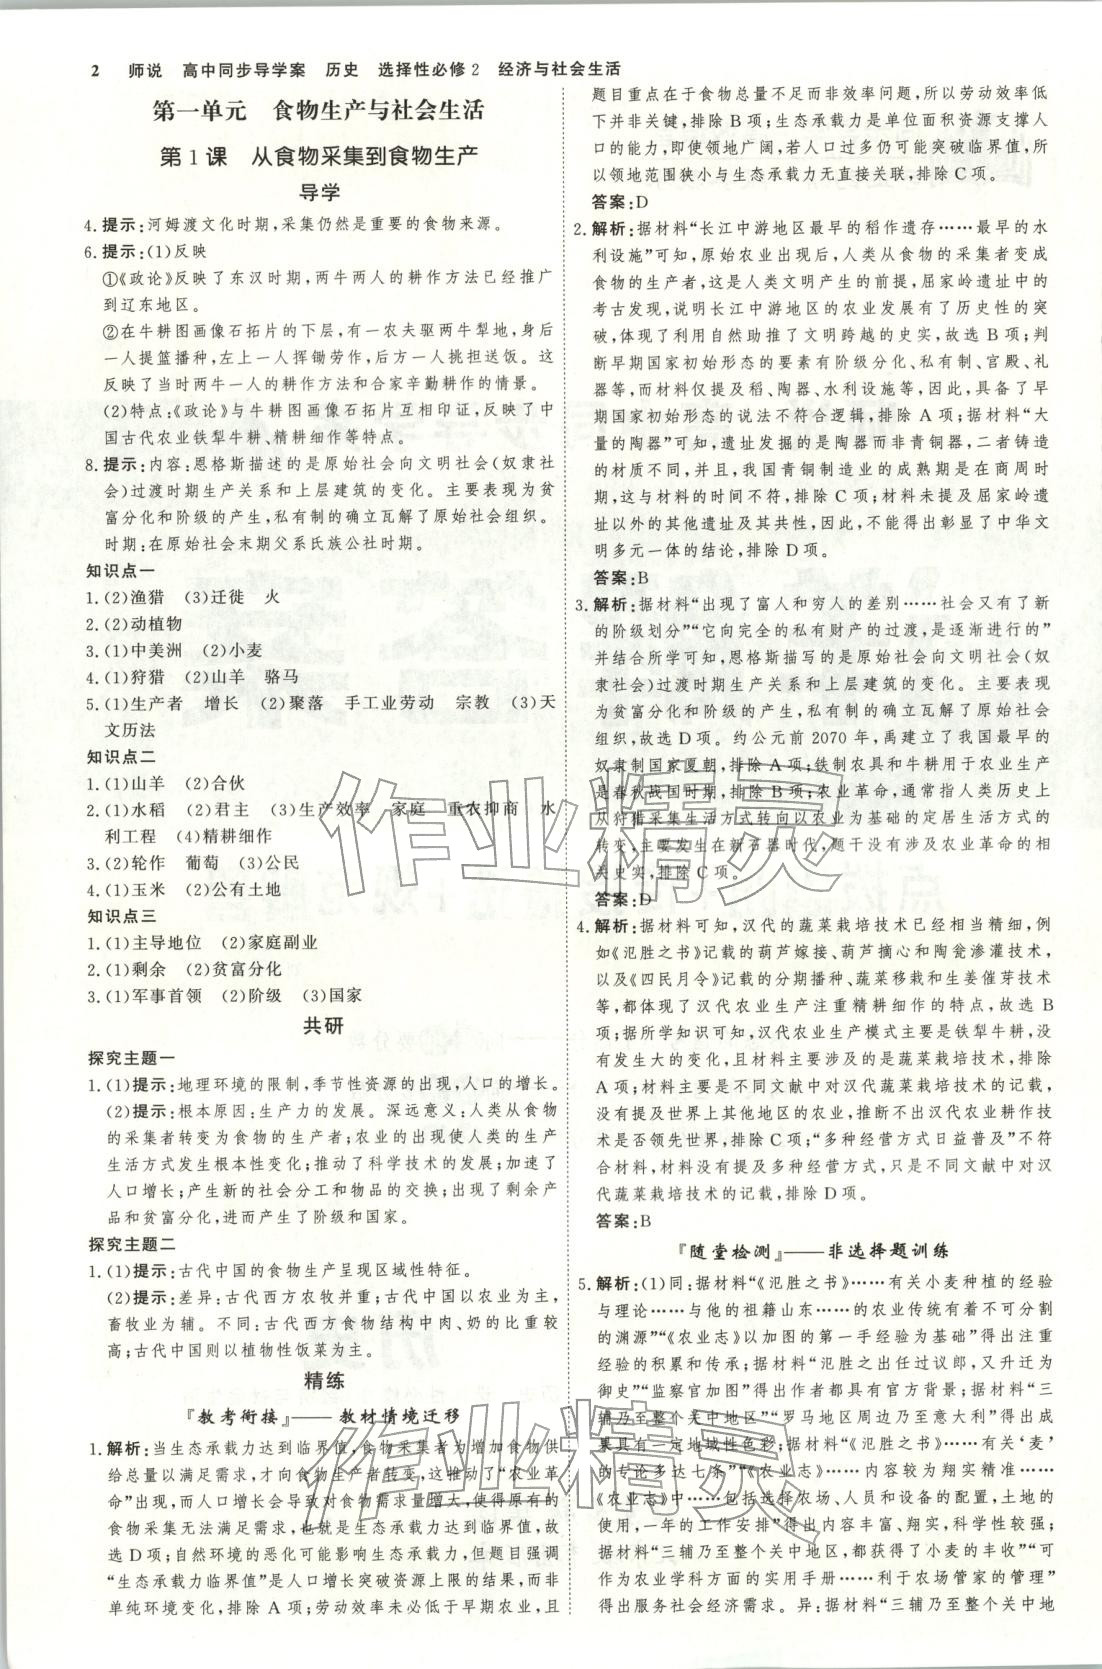 2 师说 高中同步导学案 历史 选择性必修2 经济与社会生活
第一单元 食物生产与社会生活
第1课 从食物采集到食物生产
导学
4.提示:河姆渡文化时期,采集仍然是重要的食物来源。
6.提示:(1)反映
①《政论》反映了东汉时期,两牛两人的耕作方法已经推广
到辽东地区。
②在牛耕图画像石拓片的下层,有一农夫驱两牛犁地,身后
一人提篮播种,左上一人挥锄劳作,后方一人挑担送饭。这
反映了当时两牛一人的耕作方法和合家辛勤耕作的情景。
(2)特点:《政论》与牛耕图画像石拓片互相印证,反映了中
国古代农业铁犁牛耕、精耕细作等特点。
8.提示:内容:恩格斯描述的是原始社会向文明社会(奴隶社
会)过渡时期生产关系和上层建筑的变化。主要表现为贫
富分化和阶级的产生,私有制的确立瓦解了原始社会组织。
时期:在原始社会末期父系氏族公社时期。
知识点一
1.(2)渔猎 (3)迁徙 火
2.(2)动植物
3.(1)中美洲 (2)小麦
4.(1)狩猎 (2)山羊 骆马
5.(1)生产者 增长 (2)聚落 手工业劳动 宗教 (3)天
文历法
知识点二
1.(1)山羊 (2)合伙
2.(1)水稻 (2)君主 (3)生产效率 家庭 重农抑商 水
利工程 (4)精耕细作
3.(2)轮作 葡萄 (3)公民
4.(1)玉米 (2)公有土地
知识点三
1.(1)主导地位 (2)家庭副业
2.(1)剩余 (2)贫富分化
3.(1)军事首领 (2)阶级 (3)国家
共研
探究主题一
1.(1)提示:地理环境的限制,季节性资源的出现,人口的增长。
(2)提示:根本原因:生产力的发展。深远意义:人类从食物
的采集者转变为食物的生产者;农业的出现使人类的生产
生活方式发生根本性变化;推动了科学技术的发展;加速了
人口增长;产生新的社会分工和物品的交换;出现了剩余产
品和贫富分化,进而产生了阶级和国家。
探究主题二
1.(1)提示:古代中国的食物生产呈现区域性特征。
(2)提示:差异:古代西方农牧并重;古代中国以农业为主,
畜牧业为辅。不同:古代西方食物结构中肉、奶的比重较
高;古代中国则以植物性饭菜为主。
精练
『教考衔接』——教材情境迁移
1.解析:当生态承载力达到临界值,食物采集者为增加食物供
给总量以满足需求,才向食物生产者转变,这推动了“农业革
命”出现,而人口增长会导致对食物需求量增大,使得原有的
食物采集无法满足需求,也就是生态承载力达到临界值,故
选D项;自然环境的恶化可能影响生态承载力,但题目强调
“生态承载力临界值”是人口增长突破资源上限的结果,而非
单纯环境变化,排除A项;劳动效率未必低于早期农业,且
题目重点在于食物总量不足而非效率问题,所以劳动效率低
下并非关键,排除B项;生态承载力是单位面积资源支撑人
口的能力,即使领地广阔,若人口过多仍可能突破临界值,所
以领地范围狭小与生态承载力无直接关联,排除C项。
答案:D
2.解析:据材料“长江中游地区最早的稻作遗存……最早的水
利设施”可知,原始农业出现后,人类从食物的采集者变成
食物的生产者,这是人类文明产生的前提,屈家岭遗址中的
考古发现,说明长江中游地区的农业发展有了历史性的突
破,体现了利用自然助推了文明跨越的史实,故选B项;判
断早期国家初始形态的要素有阶级分化、私有制、宫殿、礼
器等,而材料仅提及稻、陶器、水利设施等,因此,具备了早
期国家初始形态的说法不符合逻辑,排除A项;据材料“大
量的陶器”可知,遗址发掘的是陶器而非青铜器,二者铸造
的材质不同,并且,我国青铜制造业的成熟期是在商周时
期,这与材料的时间不符,排除C项;材料未提及屈家岭遗
址以外的其他遗址及其共性,因此,不能得出彰显了中华文
明多元一体的结论,排除D项。
答案:B
3.解析:据材料“出现了富人和穷人的差别……社会又有了新
的阶级划分”“它向完全的私有财产的过渡,是逐渐进行的”
并结合所学可知,恩格斯描写的是原始社会向文明社会(奴
隶社会)过渡时期生产关系和上层建筑的变化。主要表现
为贫富分化和阶级的产生,私有制的确立瓦解了原始社会
组织,故选D项。约公元前2070年,禹建立了我国最早的
奴隶制国家夏朝,排除A项;铁制农具和牛耕用于农业生产
是春秋战国时期,排除B项;农业革命,通常指人类历史上
从狩猎采集生活方式转向以农业为基础的定居生活方式的
转变,主要发生在新石器时代,题干没有涉及农业革命的相
关史实,排除C项。
答案:D
4.解析:据材料可知,汉代的蔬菜栽培技术已经相当精细,例
如《氾胜之书》记载的葫芦嫁接、葫芦摘心和陶瓮渗灌技术,
以及《四民月令》记载的分期播种、蔬菜移栽和生姜催芽技术
等,都体现了汉代农业生产注重精耕细作的特点,故选B
项;据所学知识可知,汉代农业生产模式主要是铁犁牛耕,没
有发生大的变化,且材料主要涉及的是蔬菜栽培技术,排除
A项;材料主要是不同文献中对汉代蔬菜栽培技术的记载,
没有提及世界上其他地区的农业,推断不出汉代农业耕作技
术是否领先世界,排除C项;“多种经营方式日益普及”不符
合材料,材料没有提及多种经营方式,只是不同文献中对汉
代蔬菜栽培技术的记载,排除D项。
答案:B
『随堂检测』——非选择题训练
5.解析:(1)同:据材料“《氾胜之书》……有关小麦种植的经验
与理论……与他的祖籍山东……的农业传统有着不可分割
的渊源”“《农业志》以加图的第一手经验为基础”得出注重
经验的积累和传承;据材料“氾胜之出任过议郎,又升迁为
御史”“监察官加图”得出作者都具有官方背景;据材料“三
辅乃至整个关中地区”“罗马地区周边乃至意大利”得出成
果具有一定地域性色彩;据材料“《氾胜之书》……有关‘麦’
的专论多达七条”“《农业志》……内容较为翔实精准……
《农业志》中……包括选择农场、人员和设备的配置,土地的
使用,一年的工作安排”得出内容丰富、翔实,科学性较强;
据材料“三辅乃至整个关中地区,都获得了小麦的丰收”“可
作为农业学科方面的实用手册……利于农场管家的管理”
得出服务社会经济需求。异:据材料“三辅乃至整个关中地
作业精灵
作业精灵